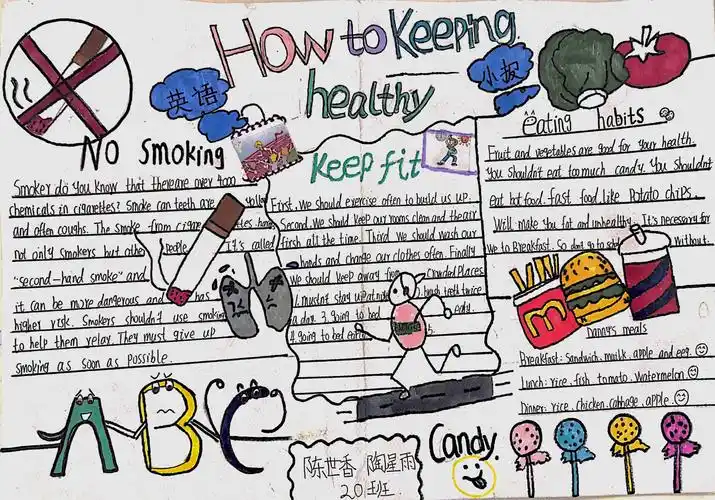 How to Keeping
healthy
英语
小报
No Smoking
Smoker do you know that there are over 4000
chemicals in cigarettes? Smoke can teeth are yollow
and often coughs. The smoke from cigarettes
not only smokers but other people. It's called
"second-hand smoke" and
it can be more dangerous and has
higher risk. Smokers shouldn't use smoking
to help them relax. They must give up
smoking as soon as possible.
keep fit
First. We should exercise often to build us up.
Second. We should keep our rooms clean and the air
firsh all the time. Third. We should wash our
hands and change our clothes often. Finally
We should keep away from Crowded Places.
1. mustn't stay up at night brush teeth twice
a day. 3. going to bed eaky.
4. going to bed
eating habits
Fruit and vegetables are good for your health.
You shouldn't eat to much candy. You shouldn't
eat hot food. fast food. like Potato chips.
Will make you fat and unhealthy. It's necessary for
we to Breakfast. So don't go to school without.
Danny's meals
Breakfast: Sandwich. muilk. apple and eeg.
Lunch: rice. fish. tomato. watermelon
Dinner: rice. chicken. cabbage. apple.
A B C
Candy.
陈世香 陶星雨
20班